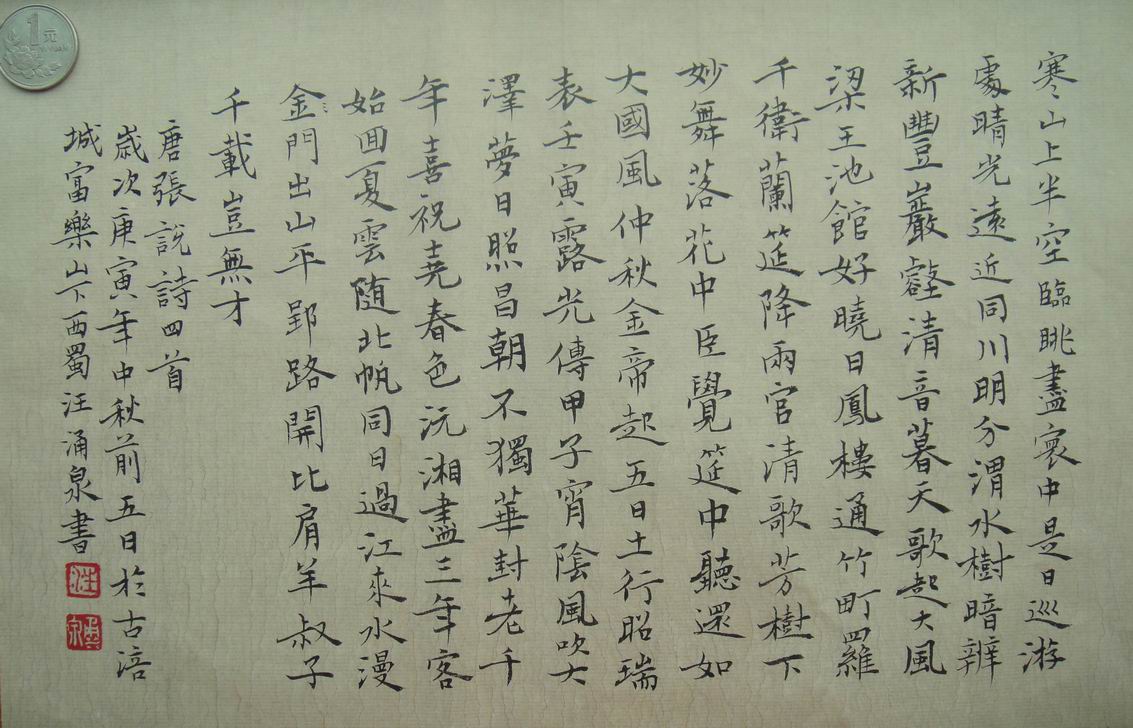 寒山上半空臨眺盡寰中是日巡游
處晴光遠近同川明分渭水樹暗辨
新豐巖壑清音暮天歌起大風
梁王池館好曉日鳳樓通竹町羅
千衛蘭筵降兩官清歌芳樹下
妙舞落花中臣覺筵中聽還如
大國風仲秋金帝起五日土行昭瑞
表壬寅露光傳甲子宵陰風吹大
澤夢日照昌朝不獨華封老千
年喜祝堯春色沅湘盡三年客
始回夏雲随北帆同日過江來水漫
金門出山平郢路開比肩羊叔子
千載豈無才
唐張說詩四首
歲次庚寅年中秋前五日於古涪
城富樂山下西蜀汪涌泉書
汪
1元
YI YUAN